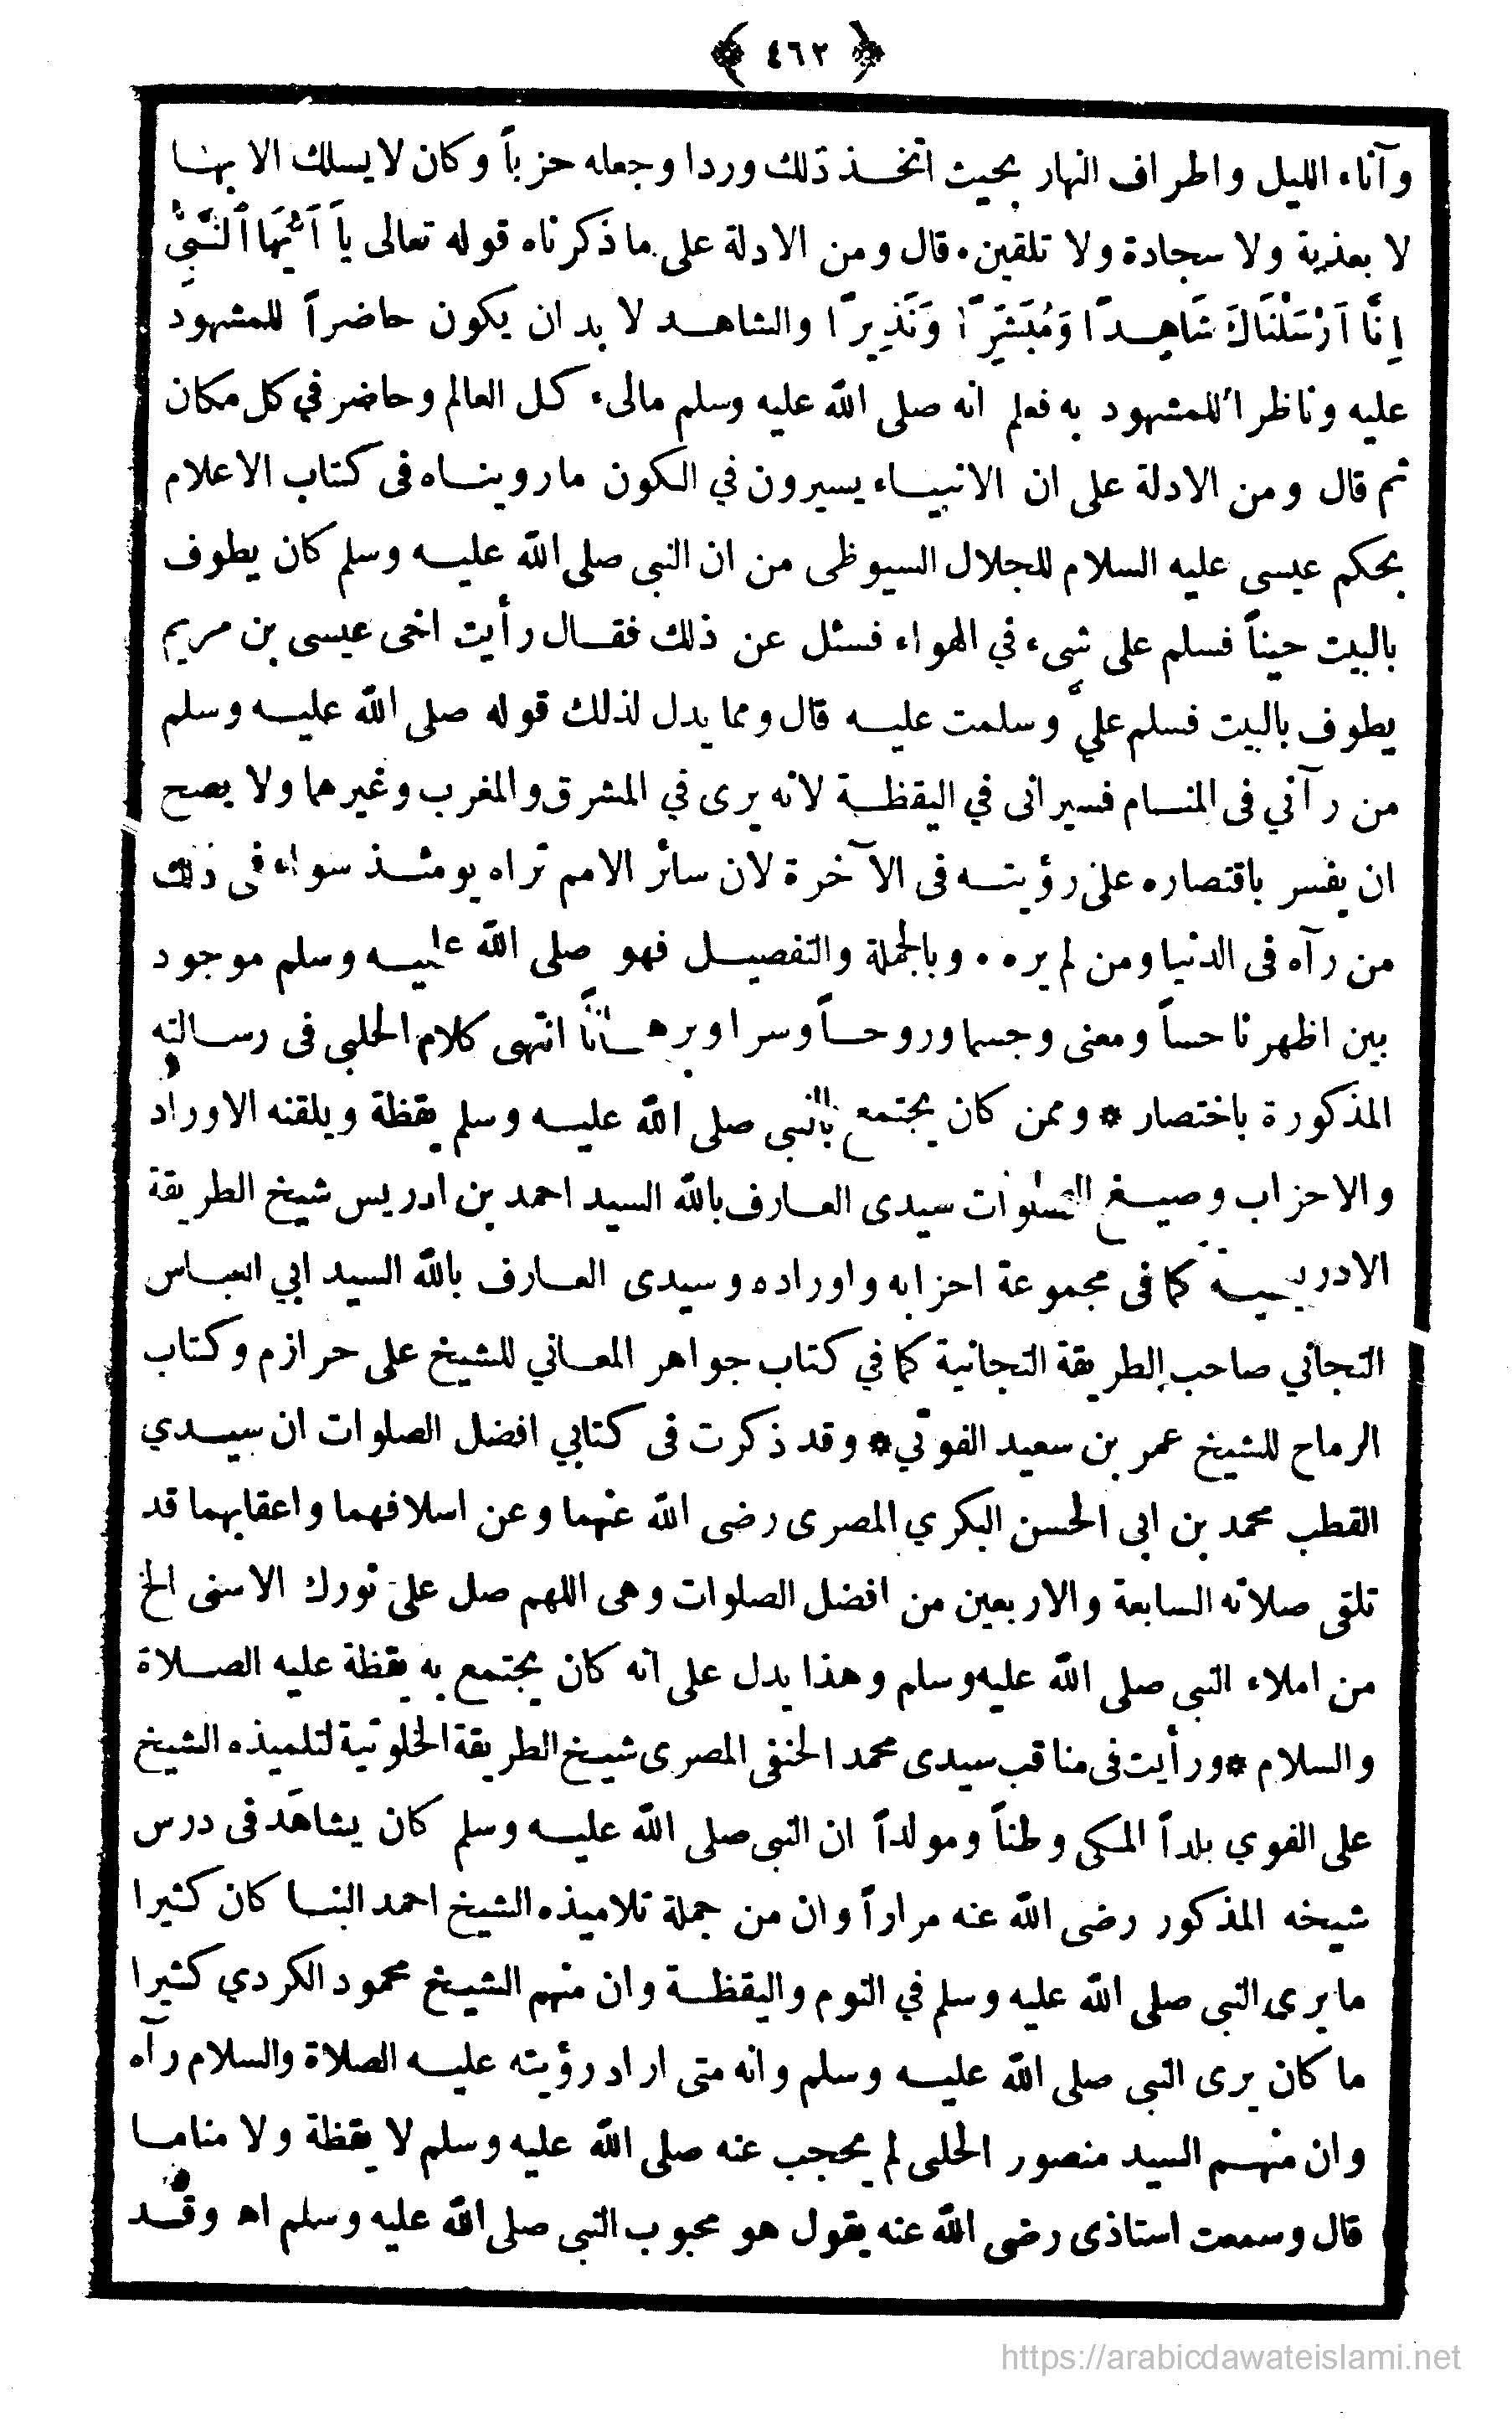 ﴿ ٤٦٢ ﴾
وآناء الليل واطراف النهار بحيث اتخذ ذلك وردا وجعله حزباً وكان لا يسلك الا بها
لا بعذبة ولا سجادة ولا تلقين ٠ قال ومن الادلة على ما ذكرناه قوله تعالى يَا اَيُّهَا ٱلنَّبِيُّ
اِنَّا اَرْسَلْنَاكَ شَاهِدًا وَمُبَشِّرًا وَنَذِيرًا والشاهد لا بد ان يكون حاضراً للمشهود
عليه وناظرا للمشهود به فعلم انه صلى الله عليه وسلم مالىء كل العالم وحاضر في كل مكان
ثم قال ومن الادلة على ان الانبياء يسيرون في الكون ما رويناه فى كتاب الاعلام
بحكم عيسى عليه السلام للجلال السيوطى من ان النبى صلى الله عليه وسلم كان يطوف
بالبيت حيناً فسلم على شيء في الهواء فسئل عن ذلك فقال رأيت اخى عيسى بن مريم
يطوف بالبيت فسلم عليَّ وسلمت عليه قال ومما يدل لذلك قوله صلى الله عليه وسلم
من رآني فى المنام فسيرانى في اليقظة لانه يرى في المشرق والمغرب وغيرهما ولا يصح
ان يفسر باقتصاره على رؤيته فى الآخرة لان سائر الامم تراه يومئذ سواء فى ذلك
من رآه فى الدنيا ومن لم يره ٠ وبالجملة والتفصيل فهو صلى الله عليه وسلم موجود
بين اظهرنا حساً ومعنى وجسما وروحاً وسرا وبرهاناً انتهى كلام الحلبى فى رسالته
المذكورة باختصار * وممن كان يجتمع بالنبى صلى الله عليه وسلم يقظة ويلقنه الاوراد
والاحزاب وصيغ الصلوات سيدى العارف بالله السيد احمد بن ادريس شيخ الطريقة
الادريسية كما فى مجموعة احزابه واوراده وسيدى العارف بالله السيد ابي العباس
التجاني صاحب الطريقة التجانية كما في كتاب جواهر المعاني للشيخ على حرازم وكتاب
الرماح للشيخ عمر بن سعيد الفوتي * وقد ذكرت فى كتابي افضل الصلوات ان سيدي
القطب محمد بن ابى الحسن البكري المصرى رضى الله عنهما وعن اسلافهما واعقابهما قد
تلقى صلاته السابعة والاربعين من افضل الصلوات وهى اللهم صل على نورك الاسنى الخ
من املاء النبى صلى الله عليه وسلم وهذا يدل على انه كان يجتمع به يقظة عليه الصلاة
والسلام * ورأيت فى مناقب سيدى محمد الحنفى المصرى شيخ الطريقة الخلوتية لتلميذه الشيخ
على الفوي بلداً المكى وطناً ومولداً ان النبى صلى الله عليه وسلم كان يشاهَد فى درس
شيخه المذكور رضى الله عنه مراراً وان من جملة تلاميذه الشيخ احمد البنا كان كثيرا
ما يرى النبى صلى الله عليه وسلم في النوم واليقظة وان منهم الشيخ محمود الكردي كثيرا
ما كان يرى النبى صلى الله عليه وسلم وانه متى اراد رؤيته عليه الصلاة والسلام رآه
وان منهم السيد منصور الحلبى لم يحجب عنه صلى الله عليه وسلم لا يقظة ولا مناما
قال وسمعت استاذى رضى الله عنه يقول هو محبوب النبى صلى الله عليه وسلم اه وقد
https://arabicdawateislami.net